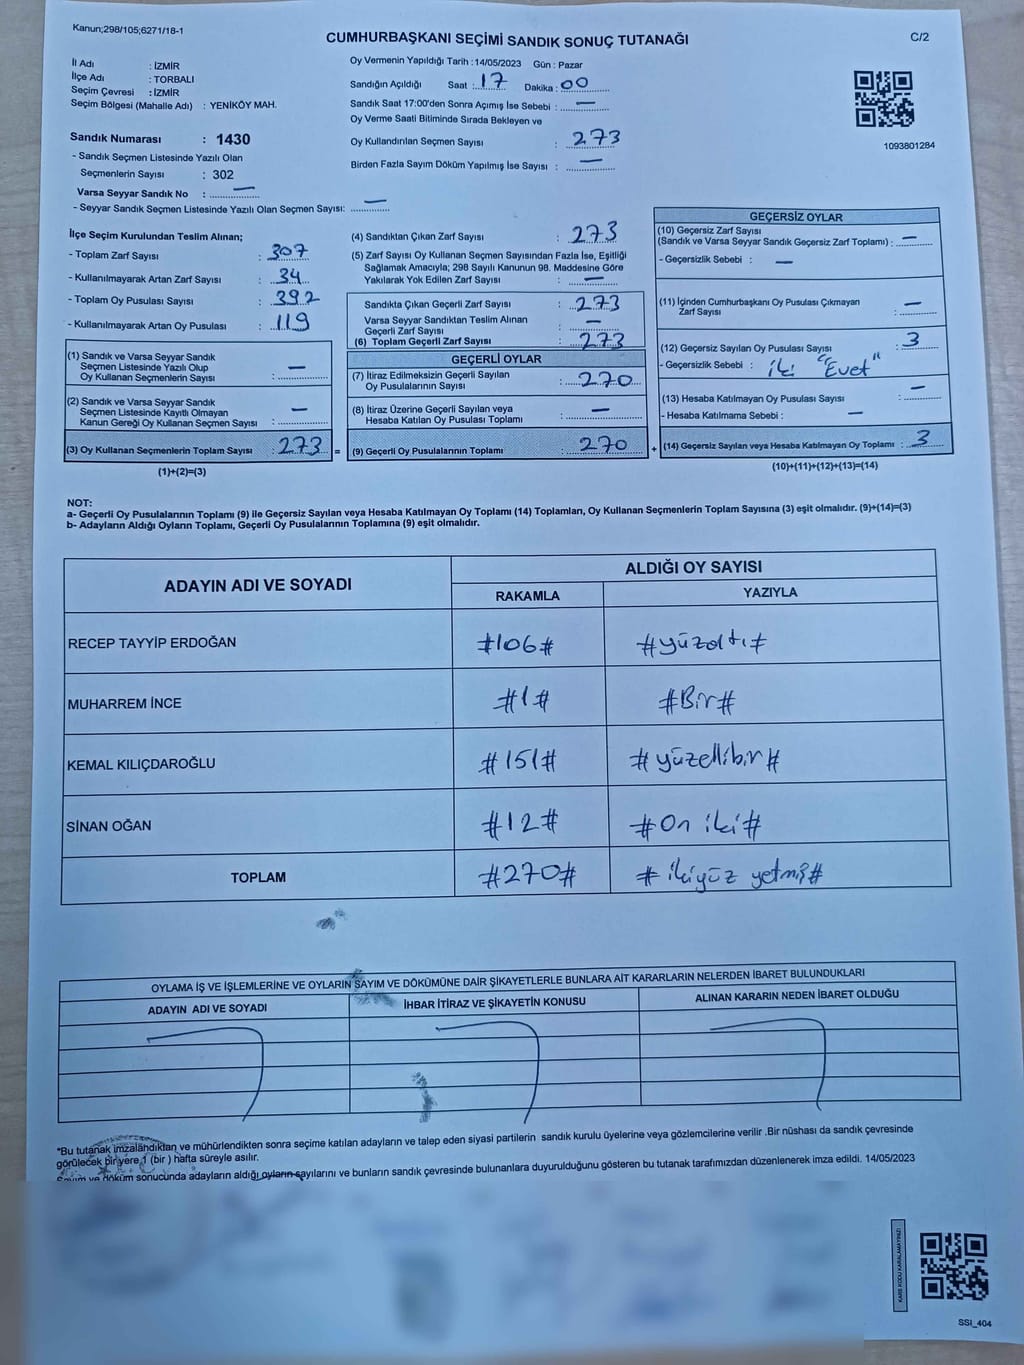 Kanun;298/105;6271/18-1
C/2
CUMHURBAŞKANI SEÇİMİ SANDIK SONUÇ TUTANAĞI
İl Adı : İZMİR
İlçe Adı : TORBALI
Seçim Çevresi : İZMİR
Seçim Bölgesi (Mahalle Adı) : YENİKÖY MAH.
Sandık Numarası : 1430
- Sandık Seçmen Listesinde Yazılı Olan
Seçmenlerin Sayısı : 302
Varsa Seyyar Sandık No : —
- Seyyar Sandık Seçmen Listesinde Yazılı Olan Seçmen Sayısı: —
Oy Vermenin Yapıldığı Tarih : 14/05/2023 Gün : Pazar
Sandığın Açıldığı Saat : 17 Dakika : 00
Sandık Saat 17:00'den Sonra Açımış İse Sebebi : —
Oy Verme Saati Bitiminde Sırada Bekleyen ve
Oy Kullandırılan Seçmen Sayısı : 273
Birden Fazla Sayım Döküm Yapılmış İse Sayısı : —
1093801284
İlçe Seçim Kurulundan Teslim Alınan;
- Toplam Zarf Sayısı : 307
- Kullanılmayarak Artan Zarf Sayısı : 34
- Toplam Oy Pusulası Sayısı : 392
- Kullanılmayarak Artan Oy Pusulası : 119
(1) Sandık ve Varsa Seyyar Sandık
Seçmen Listesinde Yazılı Olup
Oy Kullanan Seçmenlerin Sayısı : —
(2) Sandık ve Varsa Seyyar Sandık
Seçmen Listesinde Kayıtlı Olmayan
Kanun Gereği Oy Kullanan Seçmen Sayısı : —
(3) Oy Kullanan Seçmenlerin Toplam Sayısı : 273 =
(1)+(2)=(3)
(4) Sandıktan Çıkan Zarf Sayısı : 273
(5) Zarf Sayısı Oy Kullanan Seçmen Sayısından Fazla İse, Eşitliği
Sağlamak Amacıyla; 298 Sayılı Kanunun 98. Maddesine Göre
Yakılarak Yok Edilen Zarf Sayısı : —
Sandıkta Çıkan Geçerli Zarf Sayısı : 273
Varsa Seyyar Sandıktan Teslim Alınan
Geçerli Zarf Sayısı : —
(6) Toplam Geçerli Zarf Sayısı : 273
GEÇERLİ OYLAR
(7) İtiraz Edilmeksizin Geçerli Sayılan
Oy Pusulalarının Sayısı : 270
(8) İtiraz Üzerine Geçerli Sayılan veya
Hesaba Katılan Oy Pusulası Toplamı : —
(9) Geçerli Oy Pusulalarının Toplamı : 270 +
GEÇERSİZ OYLAR
(10) Geçersiz Zarf Sayısı
(Sandık ve Varsa Seyyar Sandık Geçersiz Zarf Toplamı) : —
- Geçersizlik Sebebi : —
(11) İçinden Cumhurbaşkanı Oy Pusulası Çıkmayan
Zarf Sayısı : —
(12) Geçersiz Sayılan Oy Pusulası Sayısı : 3
- Geçersizlik Sebebi : iki "Evet"
(13) Hesaba Katılmayan Oy Pusulası Sayısı : —
- Hesaba Katılmama Sebebi : —
(14) Geçersiz Sayılan veya Hesaba Katılmayan Oy Toplamı : 3
(10)+(11)+(12)+(13)=(14)
NOT:
a- Geçerli Oy Pusulalarının Toplamı (9) ile Geçersiz Sayılan veya Hesaba Katılmayan Oy Toplamı (14) Toplamları, Oy Kullanan Seçmenlerin Toplam Sayısına (3) eşit olmalıdır. (9)+(14)=(3)
b- Adayların Aldığı Oyların Toplamı, Geçerli Oy Pusulalarının Toplamına (9) eşit olmalıdır.
ADAYIN ADI VE SOYADI ALDIĞI OY SAYISI
RAKAMLA YAZIYLA
RECEP TAYYİP ERDOĞAN #106# #yüzaltı#
MUHARREM İNCE #1# #Bir#
KEMAL KILIÇDAROĞLU #151# #yüzellibir#
SİNAN OĞAN #12# #On iki#
TOPLAM #270# #ikiyüz yetmiş#
OYLAMA İŞ VE İŞLEMLERİNE VE OYLARIN SAYIM VE DÖKÜMÜNE DAİR ŞİKAYETLERLE BUNLARA AİT KARARLARIN NELERDEN İBARET BULUNDUKLARI
ADAYIN ADI VE SOYADI İHBAR İTİRAZ VE ŞİKAYETİN KONUSU ALINAN KARARIN NEDEN İBARET OLDUĞU
*Bu tutanak imzalandıktan ve mühürlendikten sonra seçime katılan adayların ve talep eden siyasi partilerin sandık kurulu üyelerine veya gözlemcilerine verilir .Bir nüshası da sandık çevresinde
görülecek bir yere 1 (bir ) hafta süreyle asılır.
Sayım ve döküm sonucunda adayların aldığı oyların sayılarını ve bunların sandık çevresinde bulunanlara duyurulduğunu gösteren bu tutanak tarafımızdan düzenlenerek imza edildi. 14/05/2023
KARE KODU KARALAMAYINIZ!
SSI_404